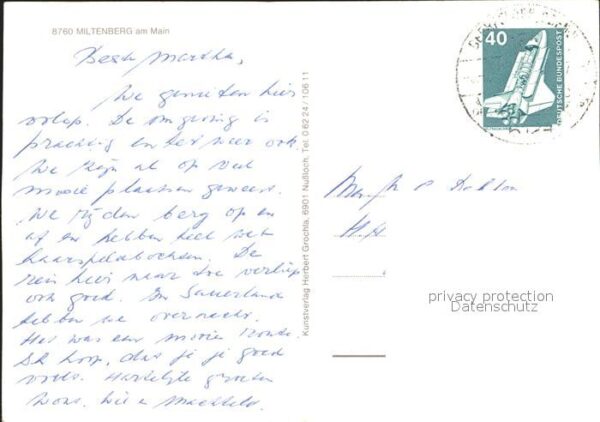 8760 MILTENBERG am Main
Beste Martha,
We genieten hier
volop. De omgeving is
prachtig en het weer ook
We zijn al op veel
mooie plaatsen geweest.
We rijden berg op en
af en hebben heel wat
haarspeldbochten. De
reis hier naar toe verliep
ook goed. In Sauerland
hebben we overnacht.
Het was een mooie route.
Ik hoop, dat je je goed
voelt. Hartelijke groeten
Wons,
Kunstverlag Herbert Grochla, 6901 Nußloch, Tel. 0 62 24 / 106 11
40
DEUTSCHE BUNDESPOST
privacy protection
Datenschutz